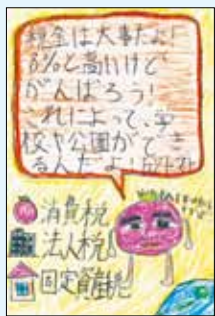 税金は大事だよ!
8%と高いけど
がんばろう!
これによって、学
校や公園ができ
るんだよ!
消費税
法人税
固定資産税